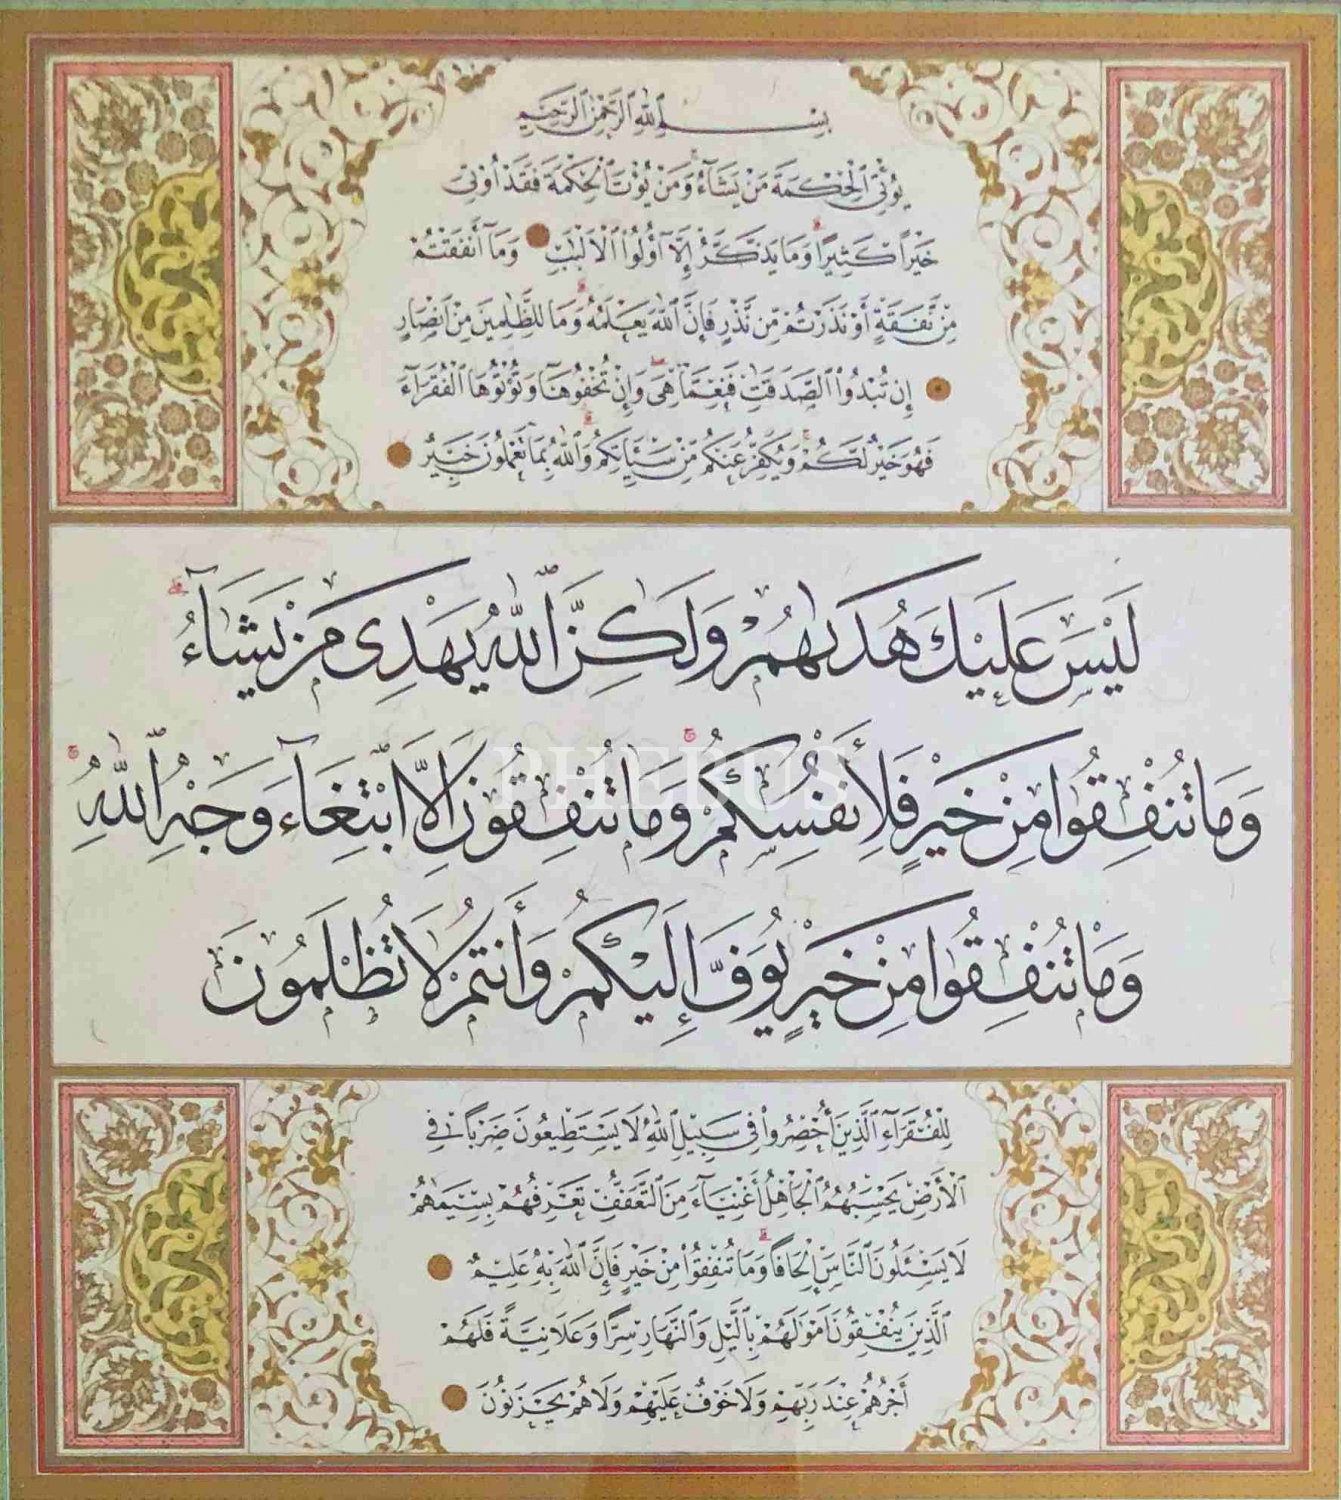 بِسْمِ ٱللَّهِ ٱلرَّحْمَٰنِ ٱلرَّحِيمِ
يُؤْتِي ٱلْحِكْمَةَ مَن يَشَآءُ وَمَن يُؤْتَ ٱلْحِكْمَةَ فَقَدْ أُوتِيَ
خَيْرًا كَثِيرًا وَمَا يَذَّكَّرُ إِلَّآ أُو۟لُوا۟ ٱلْأَلْبَٰبِ وَمَآ أَنفَقْتُم
مِّن نَّفَقَةٍ أَوْ نَذَرْتُم مِّن نَّذْرٍ فَإِنَّ ٱللَّهَ يَعْلَمُهُ وَمَا لِلظَّٰلِمِينَ مِنْ أَنصَارٍ
إِن تُبْدُوا۟ ٱلصَّدَقَٰتِ فَنِعِمَّا هِيَ وَإِن تُخْفُوهَا وَتُؤْتُوهَا ٱلْفُقَرَآءَ
فَهُوَ خَيْرٌ لَّكُمْ وَيُكَفِّرُ عَنكُم مِّن سَيِّـَٔاتِكُمْ وَٱللَّهُ بِمَا تَعْمَلُونَ خَبِيرٌ
لَيْسَ عَلَيْكَ هُدَىٰهُمْ وَلَٰكِنَّ ٱللَّهَ يَهْدِى مَن يَشَآءُ
وَمَا تُنفِقُوا مِنْ خَيْرٍ فَلِأَنفُسِكُمْ وَمَا تُنفِقُونَ إِلَّا ٱبْتِغَآءَ وَجْهِ ٱللَّهِ
وَمَا تُنفِقُوا مِنْ خَيْرٍ يُوَفَّ إِلَيْكُمْ وَأَنتُمْ لَا تُظْلَمُونَ
لِلْفُقَرَآءِ ٱلَّذِينَ أُحْصِرُوا۟ فِي سَبِيلِ ٱللَّهِ لَا يَسْتَطِيعُونَ ضَرْبًا فِي
ٱلْأَرْضِ يَحْسَبُهُمُ ٱلْجَاهِلُ أَغْنِيَآءَ مِنَ ٱلتَّعَفُّفِ تَعْرِفُهُم بِسِيمَٰهُمْ
لَا يَسْـَٔلُونَ ٱلنَّاسَ إِلْحَافًا وَمَا تُنفِقُوا۟ مِنْ خَيْرٍ فَإِنَّ ٱللَّهَ بِهِ عَلِيمٌ
ٱلَّذِينَ يُنفِقُونَ أَمْوَٰلَهُم بِٱلَّيْلِ وَٱلنَّهَارِ سِرًّا وَعَلَانِيَةً فَلَهُمْ
أَجْرُهُمْ عِندَ رَبِّهِمْ وَلَا خَوْفٌ عَلَيْهِمْ وَلَا هُمْ يَحْزَنُونَ
PHEBUS